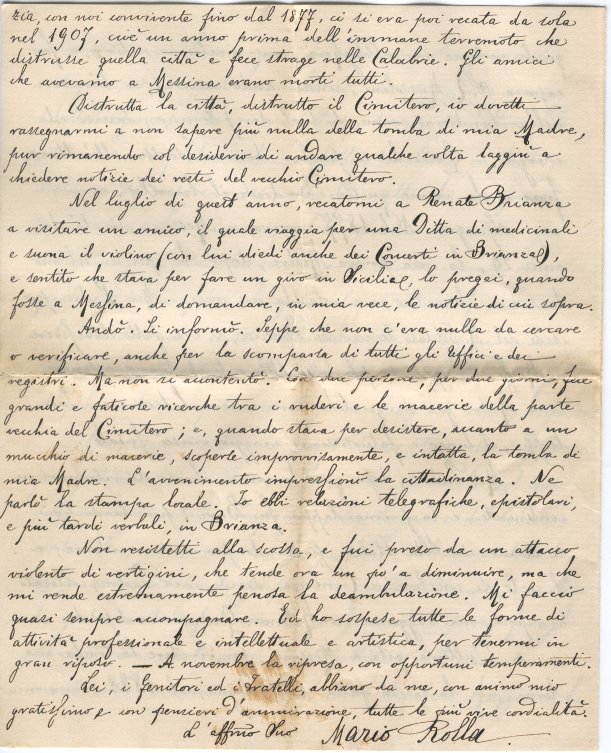 zia, con noi convivente fino dal 1877, ci si era poi recata da sola
nel 1907, cioè un anno prima dell'immane terremoto che
distrusse quella città e fece strage nelle Calabrie. Gli amici
che avevamo a Messina erano morti tutti.
Distrutta la città, distrutto il Cimitero, io dovetti
rassegnarmi a non sapere più nulla della tomba di mia Madre,
pur rimanendo col desiderio di andare qualche volta laggiù a
chiedere notizie dei resti del vecchio Cimitero.
Nel luglio di quest'anno, recatomi a Renate Brianza
a visitare un amico, il quale viaggia per una Ditta di medicinali
e suona il violino (con lui diedi anche dei Concerti in Brianza),
e sentito che stava per fare un giro in Sicilia, lo pregai, quando
fosse a Messina, di domandare, in mia vece, le notizie di cui sopra.
Andò. Si informò. Seppe che non c'era nulla da cercare
o verificare, anche per la scomparsa di tutti gli Uffici e dei
registri. Ma non si accontentò. Con due persone, per due giorni, fece
grandi e faticose ricerche tra i ruderi e le macerie della parte
vecchia del Cimitero; e, quando stava per desistere, accanto a un
mucchio di macerie, scoperse improvvisamente, e intatta, la tomba di
mia Madre. L'avvenimento impressionò la cittadinanza. Ne
parlò la stampa locale. Io ebbi relazioni telegrafiche, epistolari,
e più tardi verbali, in Brianza.
Non resistetti alla scossa, e fui preso da un attacco
violento di vertigini, che tende ora un po' a diminuire, ma che
mi rende estremamente penosa la deambulazione. Mi faccio
quasi sempre accompagnare. Ed ho sospese tutte le forme di
attività professionale e intellettuale e artistica, per tenermi in
gran riposo. — A novembre la ripresa, con opportuni temperamenti.
Lei, i Genitori ed i Fratelli, abbiano da me, con animo mio
gratissimo e con pensieri d'ammirazione, tutte le più vive cordialità.
L'affmo Suo Mario Rolla